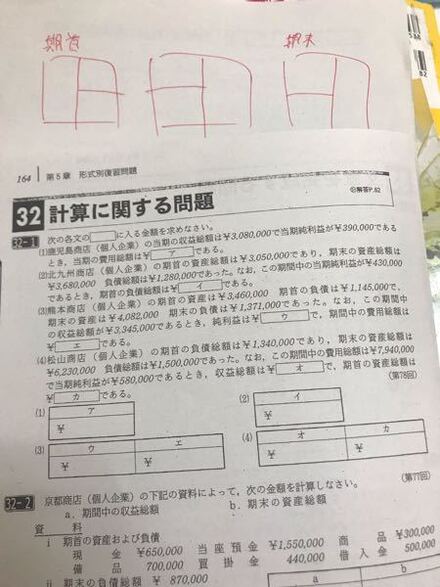 期首
期末
164 第5章 形式別復習問題
32 計算に関する問題
◎解答P.82
32-1 次の各文の□に入る金額を求めなさい。
(1)鹿児島商店(個人企業)の当期の収益総額は¥3,080,000で当期純利益が¥390,000である
とき,当期の費用総額は¥ ア である。
(2)北九州商店(個人企業)の期首の資産総額は¥3,050,000であり,期末の資産総額は
¥3,680,000 負債総額は¥1,280,000であった。なお,この期間中の当期純利益が¥430,000
であるとき,期首の負債総額は¥ イ である。
(3)熊本商店(個人企業)の期首の資産は¥3,460,000 期首の負債は¥1,145,000で,
期末の資産は¥4,082,000 期末の負債は¥1,371,000であった。なお,この期間中
の収益総額が¥3,345,000であるとき,純利益は¥ ウ で,期間中の費用総額は
¥ エ である。
(4)松山商店(個人企業)の期首の負債総額は¥1,340,000であり,期末の資産総額は
¥6,230,000 負債総額は¥1,500,000であった。なお,この期間中の費用総額は¥7,940,000
で当期純利益が¥580,000であるとき,収益総額は¥ オ で,期首の資産総額は
¥ カ である。
(第78回)
(1) ア
¥
(2) イ
¥
(3) ウ エ
¥ ¥
(4) オ カ
¥ ¥
(第77回)
32-2 京都商店(個人企業)の下記の資料によって,次の金額を計算しなさい。
a.期間中の収益総額 b.期末の資産総額
資 料
i 期首の資産および負債
現 金 ¥650,000 当座預金 ¥1,550,000 商 品 ¥300,000
備 品 700,000 買掛金 440,000 借入金 500,000
ii 期末の負債総額 ¥ 870,000
a b